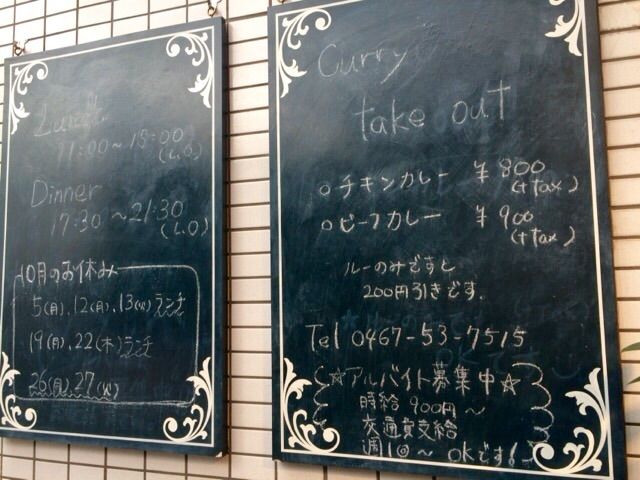 Lunch
11:00~15:00
(L.O)
Dinner
17:30~21:30
(L.O)
10月のお休み
5(月),12(月),13(火)ランチ
19(月),22(木)ランチ
26(月),27(火)
Curry
take out
○チキンカレー ¥800
(+tax)
○ビーフカレー ¥900
(+tax)
ルーのみですと
200円引きです.
Tel 0467-53-7515
☆アルバイト募集中☆
時給 900円~
交通費支給
週1回~ OKです!